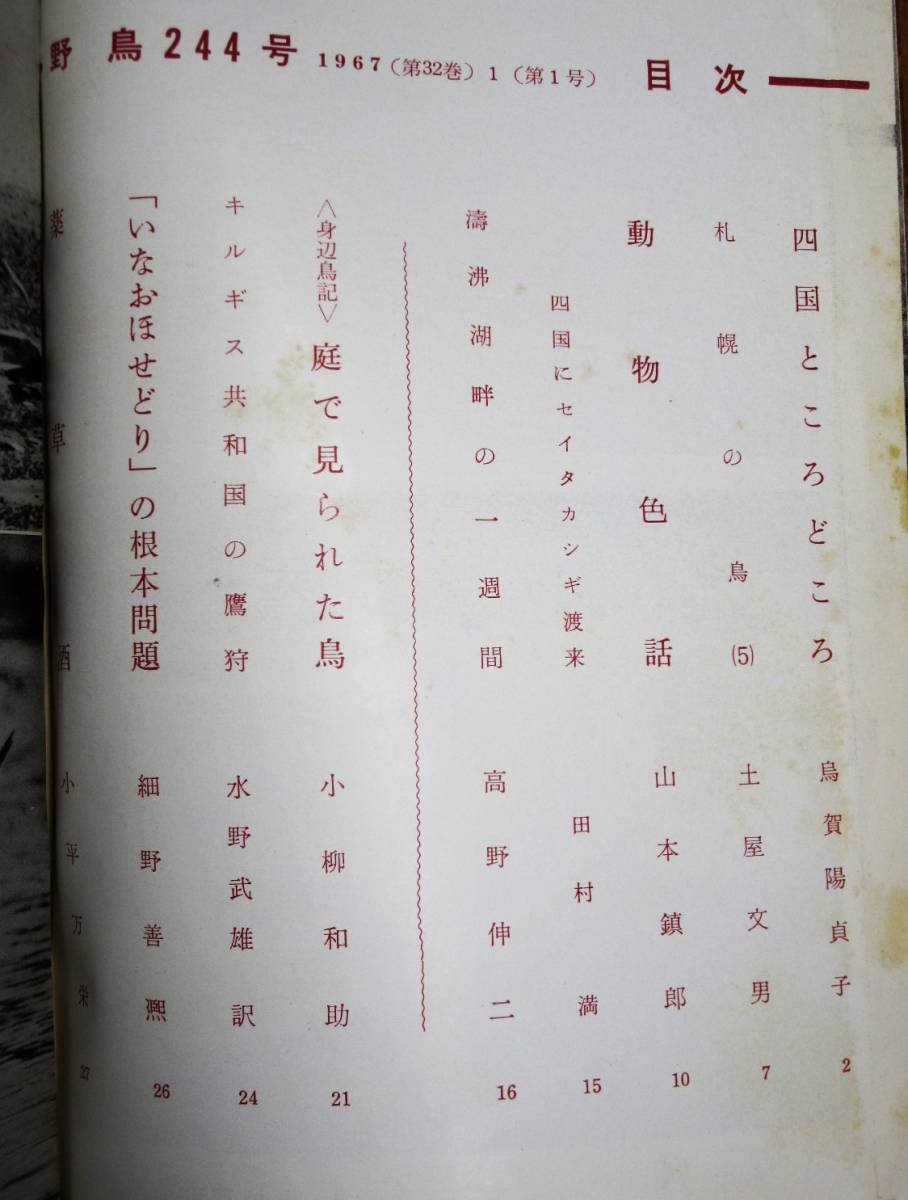 野鳥244号 1967（第32巻）1（第1号） 目次
四国ところどころ 烏賀陽貞子 2
札幌の鳥(5) 土屋文男 7
動物色話 山本鎮郎 10
四国にセイタカシギ渡来 田村満 15
濤沸湖畔の一週間 高野伸二 16
〈身辺鳥記〉庭で見られた鳥 小柳和助 21
キルギス共和国の鷹狩 水野武雄訳 24
「いなおほせどり」の根本問題 細野善熈 26
薬草酒 小平万栄 27